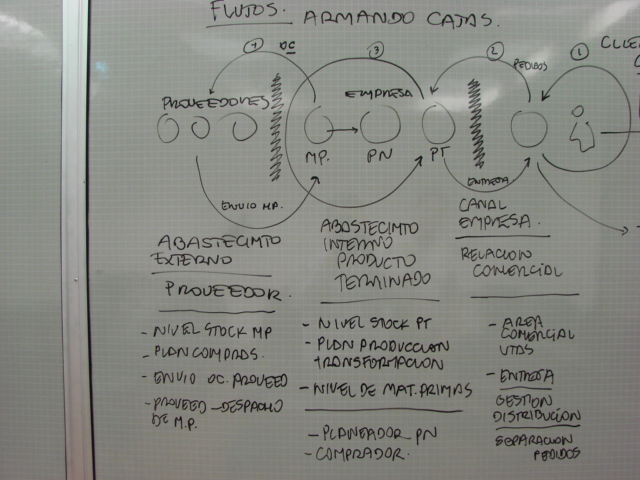 FLUJOS. ARMANDO CAJAS.
4 OC
3
2
1
PEDIDOS
PROVEEDORES
EMPRESA
MP.
PN
PT
ENVIO MP.
ENTREGA
ABASTECIMTO
EXTERNO
PROVEEDOR.
- NIVEL STOCK MP
- PLAN COMPRAS.
- ENVIO OC. PROVEED
- PROVEED - DESPACHO
DE M.P.
ABASTECIMTO
INTERNO
PRODUCTO
TERMINADO
- NIVEL STOCK PT
- PLAN PRODUCCION
TRANSFORMACION
- NIVEL DE MAT. PRIMAS
- PLANEADOR PN
- COMPRADOR.
CANAL
EMPRESA.
RELACION
COMERCIAL
- AREA
COMERCIAL
VTAS
- ENTREGA
GESTION
DISTRIBUCION
SEPARACION
PEDIDOS